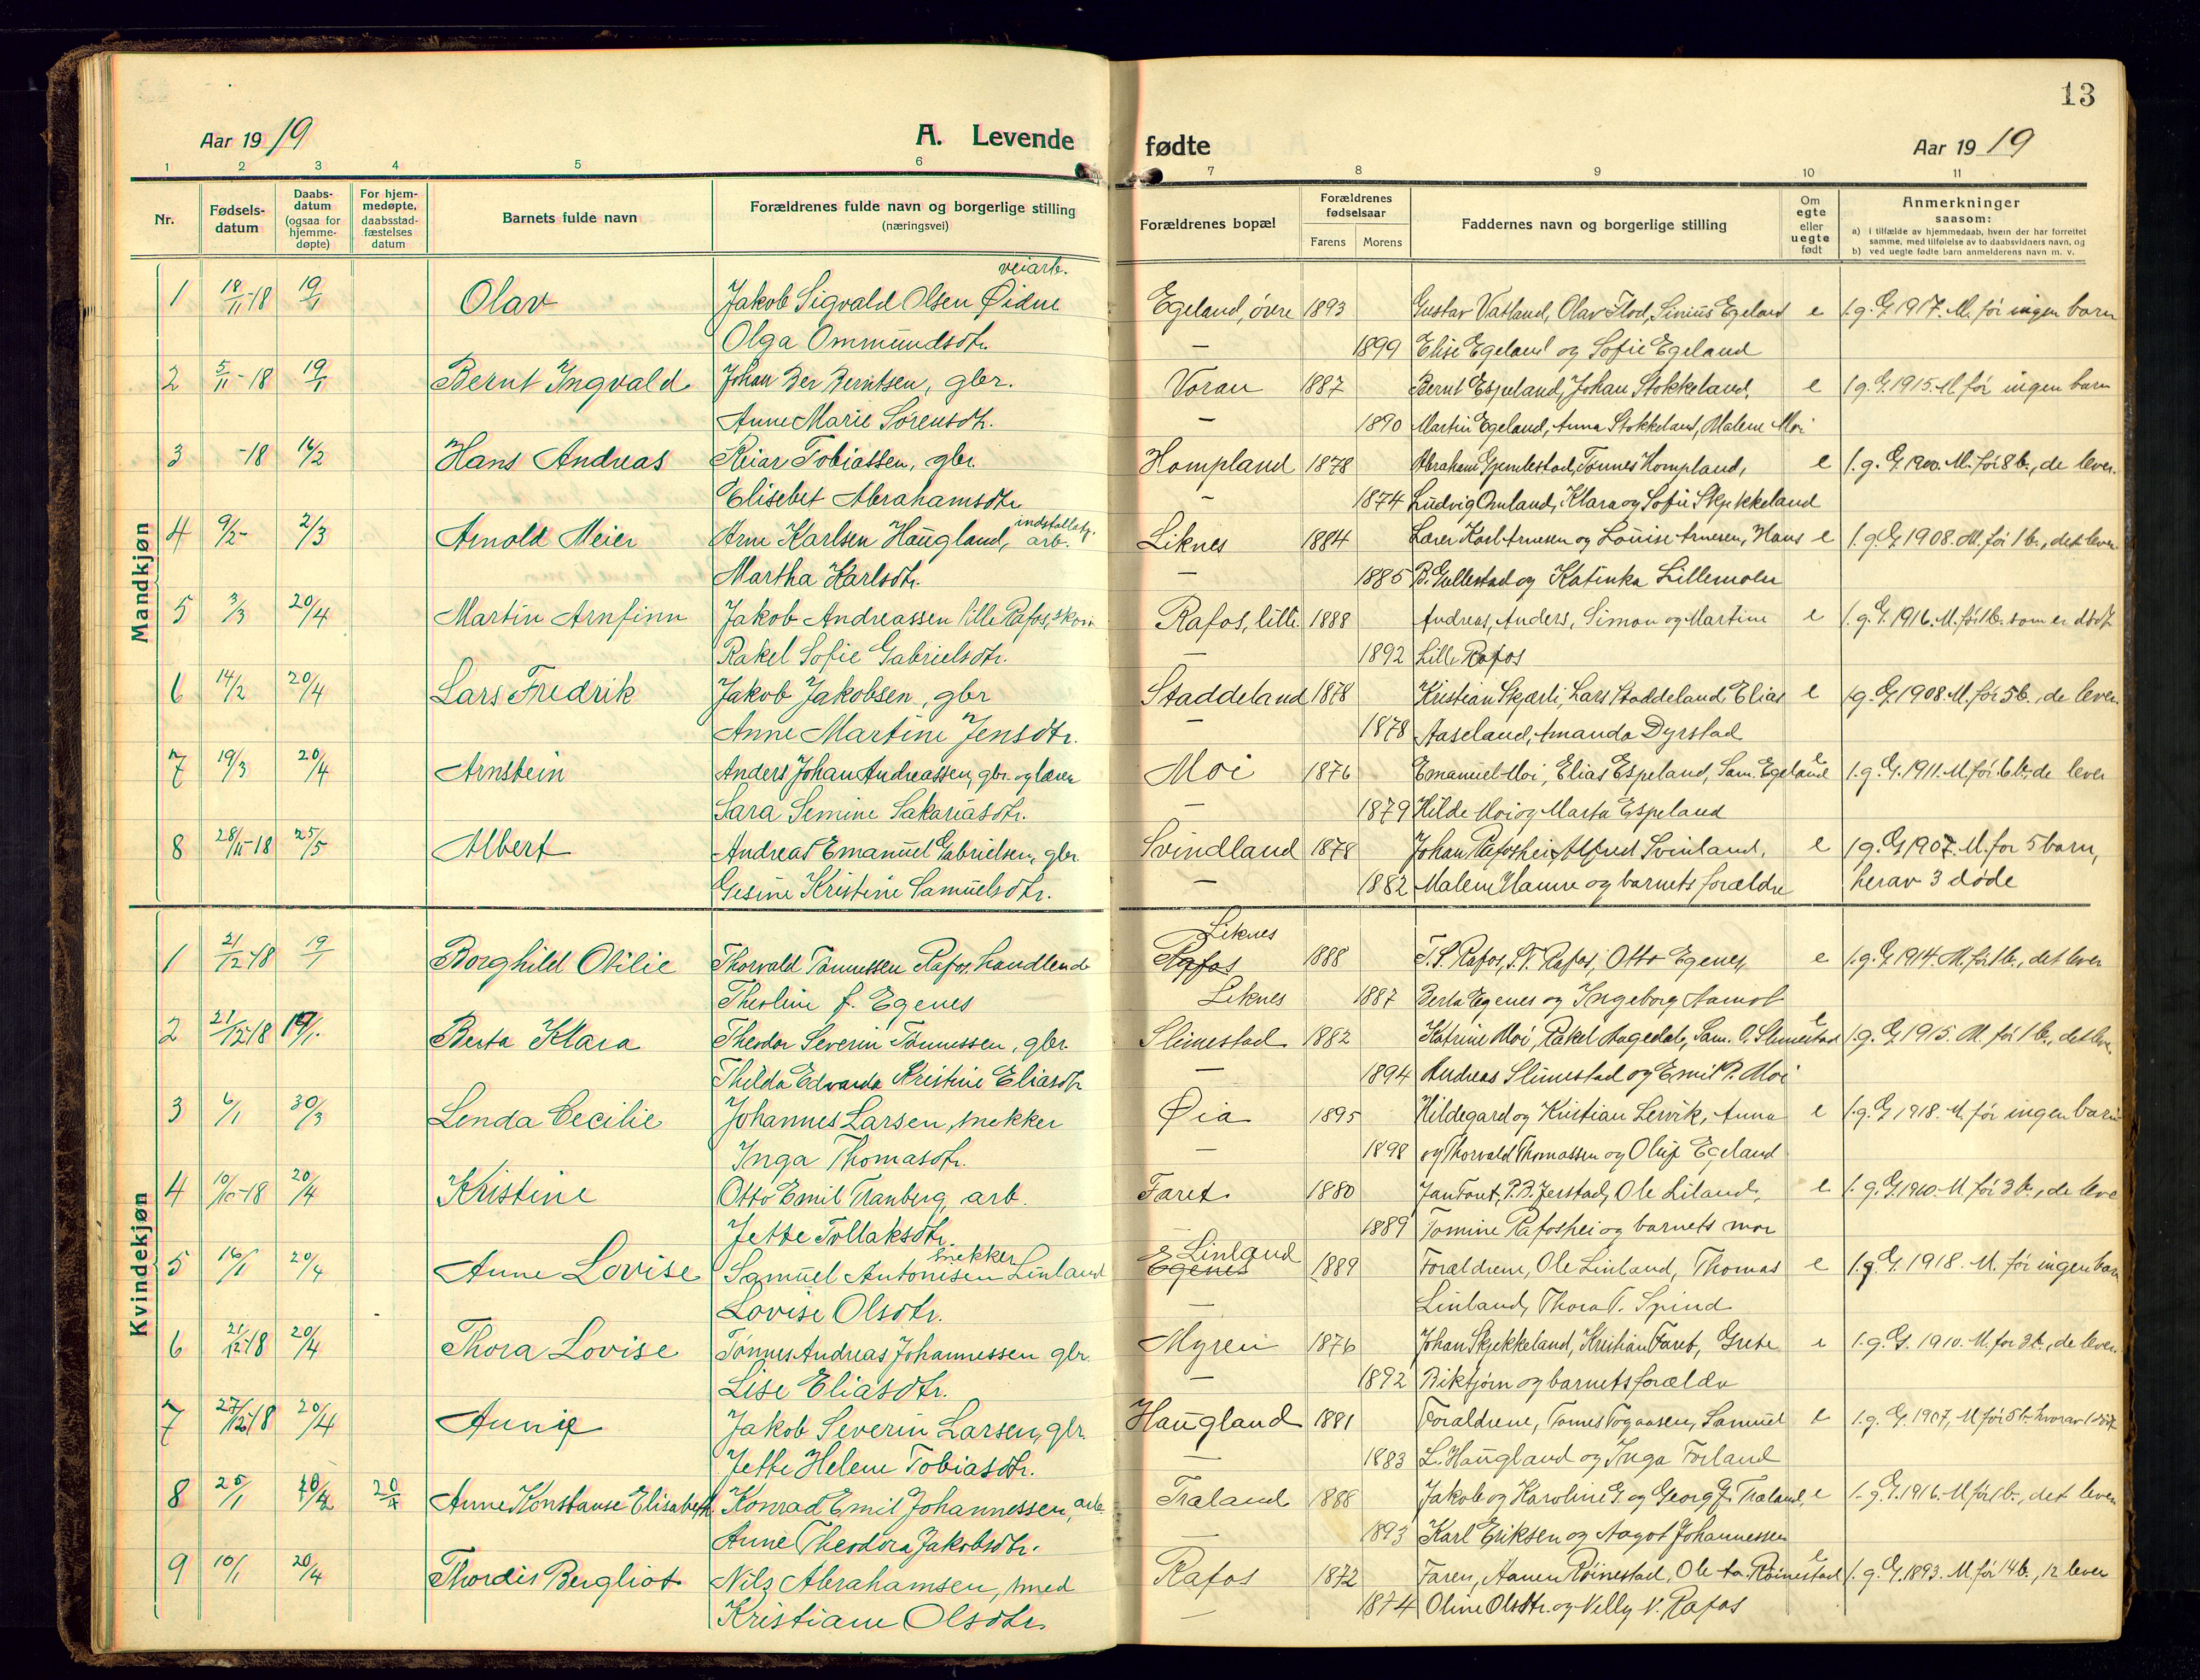 13
Aar 19 19
A. Levende
fødte
Aar 19 19
1 2 3 4 5 6 7 8 9 10 11
Nr.
Fødsels-datum
Daabs-datum (ogsaa for hjemme-døpte)
For hjem-medøpte, daabsstad-fæstelses datum
Barnets fulde navn
Forældrenes fulde navn og borgerlige stilling (næringsvei)
Forældrenes bopæl
Forældrenes fødselsaar
Farens Morens
Faddernes navn og borgerlige stilling
Om egte eller uegte født
Anmerkninger saasom:
a) i tilfælde av hjemmedaab, hvem der har forrettet samme, med tilføielse av to daabsvidners navn, og
b) ved uegte fødte barn anmelderens navn m. v.
Mandkjøn
veiarb.
1 18/11-18 19/1 Olav Jakob Sigvald Olsen Øidne Egeland, øvre 1893 Gustav Vatland, Olav Flod, Sinius Egeland e 1. g. G. 1917. M. før ingen barn
Olga Ommundsdtr. — 1899 Elise Egeland og Sofie Egeland
2 5/11-18 19/1 Bernt Ingvald Johan Ber Berntsen, gbr. Voran 1887 Bernt Espeland, Johan Stokkeland, e 1 g. G. 1915. M. før ingen barn
Anne Marie Sørensdtr. — 1890 Martin Egeland, Anna Stokkeland, Malene Moi
3 -18 16/2 Hans Andreas Reiar Tobiassen, gbr. Hompland 1878 Abraham Gjemlestad, Tønnes Hompland, e 1. g. G. 1900. M. før 8 b., de lever.
Elisebet Abrahamsdtr. — 1874 Ludvig Omland, Klara og Sofie Skjekkeland
4 9/2- 2/3 Arnold Meier Arne Karlsen Haugland, arb. Liknes 1884 Lærer Karl Arnesen og Louise Arnesen, Hans e 1. g. G. 1908. M. før 1 b., det lever.
Martha Karlsdtr. — 1885 B. Gullestad og Katinka Lillemoen
5 3/3 20/4 Martin Arnfinn Jakob Andreassen lille Rafos, skom Rafos, lille 1888 Andreas, Anders, Simon og Martine e 1. g. G. 1916. M. før 1 b. som er død
Rakel Sofie Gabrielsdtr. — 1892 Lille Rafos
6 14/2 20/4 Lars Fredrik Jakob Jakobsen, gbr Staddeland 1878 Kristian Skjærli, Lars Staddeland, Elias e 1 g. G. 1908. M. før 5 b., de lever.
Anne Martine Jensdtr. — 1878 Aaseland, Amanda Dyrstad
7 19/3 20/4 Arnstein Anders Johan Andreassen, gbr. og lærer Moi 1876 Emanuel Moi, Elias Espeland, Sam. Egeland e 1. g. G. 1911. M. før 6 b., de lever
Sara Semine Sakariasdtr. — 1879 Hilde Moi og Marta Espeland
8 28/11-18 25/5 Albert Andreas Emanuel Gabrielsen, gbr Svindland 1878 Johan Rafoshei, Alfred Svinland, e 1 g. G. 1907. M. før 5 barn,
Gesine Kristine Samuelsdtr. — 1882 Malene Hamre og barnets forældre herav 3 døde
Kvindekjøn
Liknes
1 21/12-18 19/1 Borghild Otilie Thorvald Tønnessen Rafos, handlende Rafos 1888 T. S. Rafos, S. T. Rafos, Otto Egenes, e 1. g. G. 1914. M. før 1 b., det lever
Theoline f. Egenes Liknes 1887 Berta Egenes og Ingeborg Aamot
2 21/12-18 19/1. Berta Klara Theodor Severin Tønnessen, gbr. Slimestad 1882 Katrine Moi, Rakel Hagedal, Sam. O. Slimestad e 1. g. G. 1915. M. før 1 b., det lever.
Thilda Edvarda Kristine Eliasdtr — 1894 Andreas Slimestad og Emil P. Moi
3 6/1 30/3 Lenda Cecilie Johannes Larsen, snekker Øia 1895 Hildegard og Kristian Lervik, Anna e 1. g. G. 1918. M. før ingen barn
Inga Thomasdtr. — 1898 og Thorvald Thomassen og Oluf Egeland
4 10/10-18 20/4 Kristine Otto Emil Tranberg, arb. Faret 1880 Jan Font, P. B. Jerstad, Ole Liland, e 1. g. G. 1910. M. før 3 b., de leve
Jette Tollaksdtr. — 1889 Tomine Rafoshei og barnets mor
snekker Linland
5 16/1 20/4 Anne Lovise Samuel Antonisen Linland Egenes 1889 Forældrene, Ole Linland, Thomas e 1. g. G. 1918. M. før ingen barn
Lovise Olsdtr. — Linland, Thora T. Spind
6 21/12-18 20/4 Thora Lovise Tønnes Andreas Johannessen gbr. Myren 1876 Johan Skjekkeland, Kristian Faret, Grete e 1. g. G. 1910. M. før 3 b., de lever.
Lise Eliasdtr. — 1892 Birktjørn og barnets forældre
7 27/12-18 20/4 Annie Jakob Severin Larsen, gbr. Haugland 1881 Forældrene, Tomes Togaasen, Samuel e 1. g. G. 1907, M før 5 b. hvorav 1 død
Jette Helene Tobiasdtr. — 1883 L. Haugland og Inga Forland
8 25/1 20/4 20/4 Anne Konstanse Elisabeth Konrad Emil Johannessen, arb. Træland 1888 Jakob og Karoline G. og Georg G. Træland, e 1. g. G. 1916. M. før 1 b., det lever
Anne Theodora Jakobsdtr. — 1893 Karl Eriksen og Aagot Johannessen
9 10/1 20/4 Thordis Bergliot Nils Abrahamsen, smed Rafos 1872 Faren, Aanen Røinestad, Ole Aa. Røinestad e 1. g. G. 1893. M før 14 b., 12 lever
Kristiane Olsdtr. — 1874 Oline Olsdtr. og Nelly N. Rafos